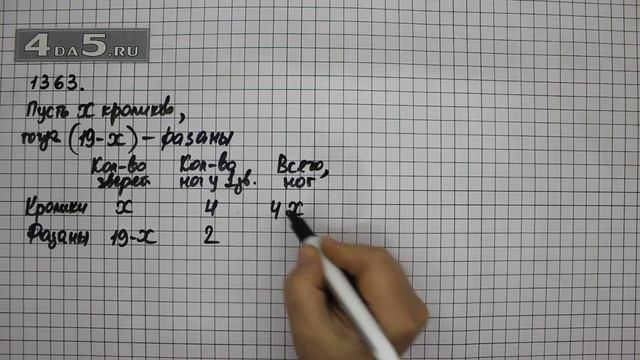 4DA5.RU
1363.
Пусть х кроликов,
тогда (19-х) – фазаны
Кол-во Кол-во Всего,
зверей ног у 1зв. ног
Кролики х 4 4х
Фазаны 19-х 2